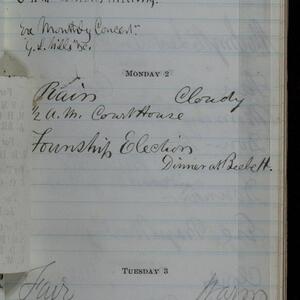 Eve Monthly Concert
MONDAY 2
Rain Cloudy
½ A.M. Court House
Township Election
Dinner at Beebett.
TUESDAY 3
Fair Warm